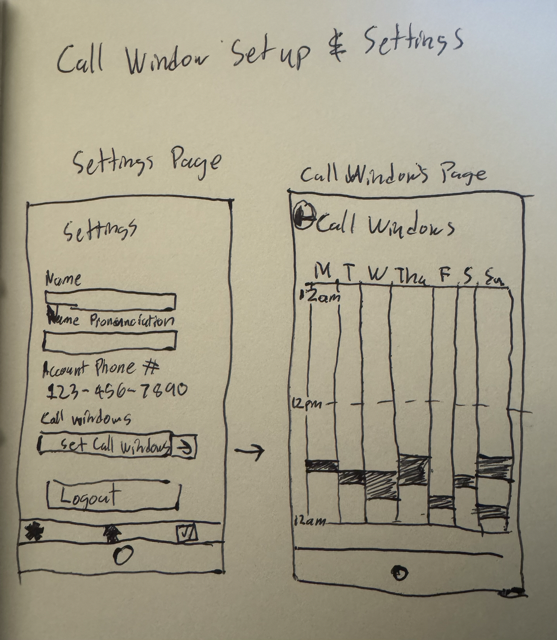 Call Window Setup & Settings
Settings Page
Settings
Name
Name Pronunciation
Account Phone #
123-456-7890
Call windows
Set Call Windows →
Logout
Call Windows Page
Call Windows
M T W Thu F S Sun
12am
12pm
12am